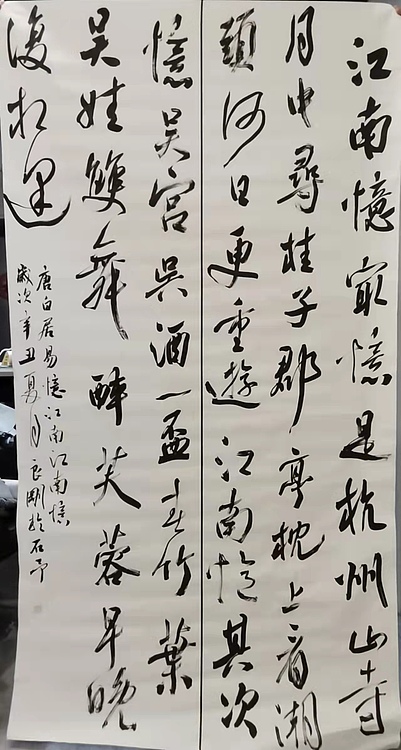 江南憶最憶是杭州山寺
月中尋桂子郡亭枕上看湖
頭何日更重遊江南憶其次
憶吳宮吳酒一盃春竹葉
吳娃雙舞醉芙蓉早晚
復相逢
唐白居易憶江南江南憶
歲次辛丑夏月良剛於石